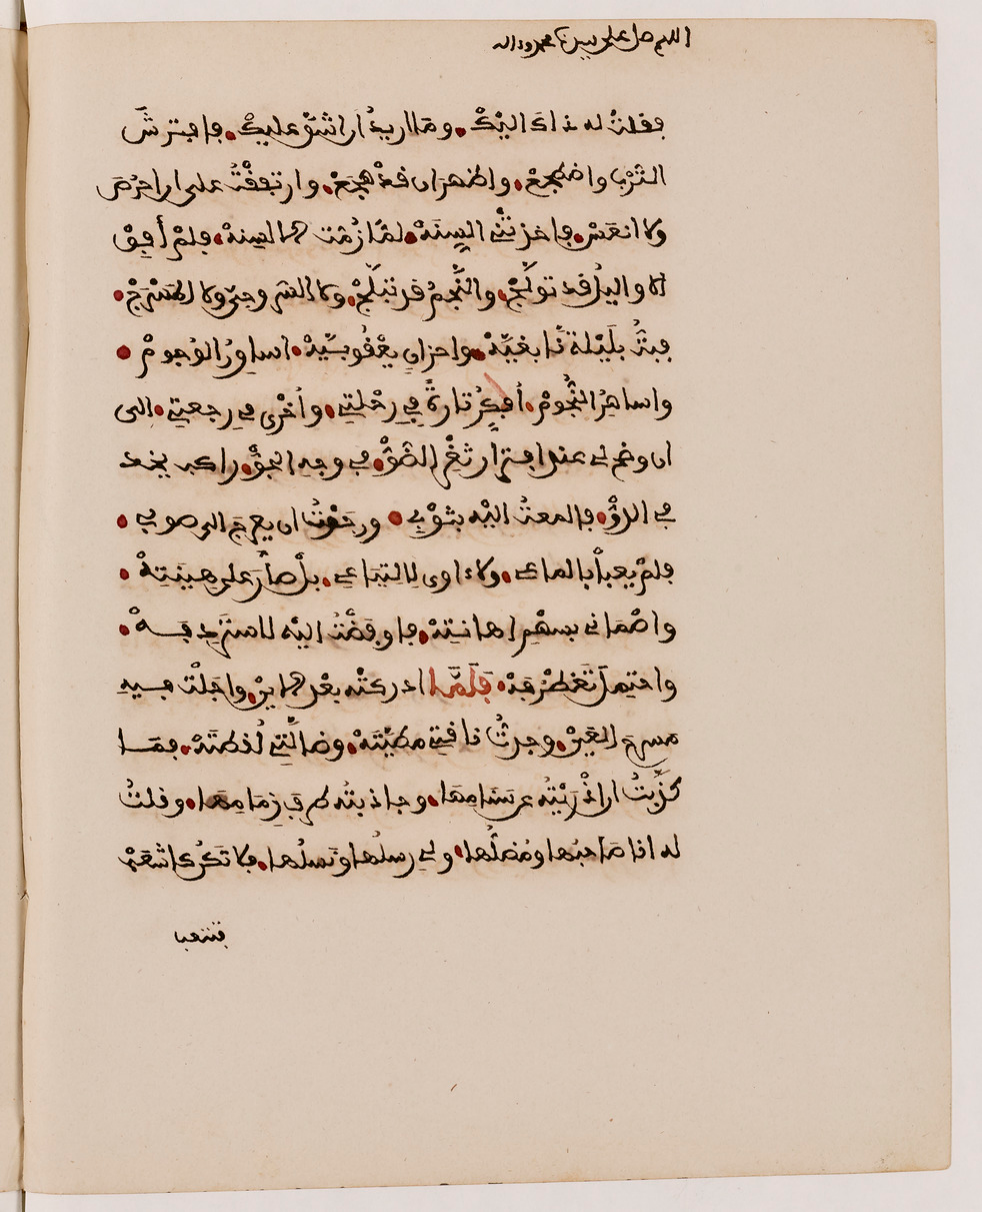 اللهم صل على سيدنا محمد وءاله
فقلتُ له ذاكَ اليْكْ • وما اريدُ ان اشقّ عليكْ • فافترشَ
التُّرْبَ واضطجعْ • واظهر ان قدْ هجعْ • وارتفقْتُ على ان احرُصَ
ولا انعَسْ • فاخذتْني السِنَةْ • لمّا زُمّت الالسِنةْ • فلمْ أفِقْ
الا والليلُ قد تولّجْ • والنَّجمُ قد تبلّجْ • ولا السّروجيّ ولا المُسْرَجْ •
فبتُّ بلَيْلة نابغيّةْ • واحزان يعْقُوبيّةْ • اساورُ الوُجومْ •
واساهِرُ النُّجُومْ • أُفكِرُ تارةً في رُحْلتِي • وأُخْرَى في رجعتِي • الى
ان وضح لي عند افترار ثغْر الضّوّْ • في وجه الجوّْ • راكب يخد
في الدّوّْ • فالمعتُ اليْه بثوْبِي • ورجَوْتُ ان يعرج الى صوبي •
فلمْ يعبأْ بالماعي • ولا اوى لالتياعي • بلْ صار على هينتِهْ •
واصْماني بسهْم اهانتِهْ • فاوفضْتُ اليْه لاستَرْدِفهْ •
واحتمل تغطرُفهْ • فلَمَّا ادركتُه بعْد الاينْ • واجَلْتُ فيه
مسرح العَيْنْ • وجدتُ ناقتِي مطيّتَهْ • وضالّتِي لُقطتَهْ • فما
كذّبتُ ان اذْريْتُه عن سَنامِها • وجاذبتُه طرف زمَامِها • وقلتُ
له انا صَاحبُها ومُضلُّها • ولي رسلُها ونَسلُها • فلا تكُن كاشْعَبْ
فتتعب